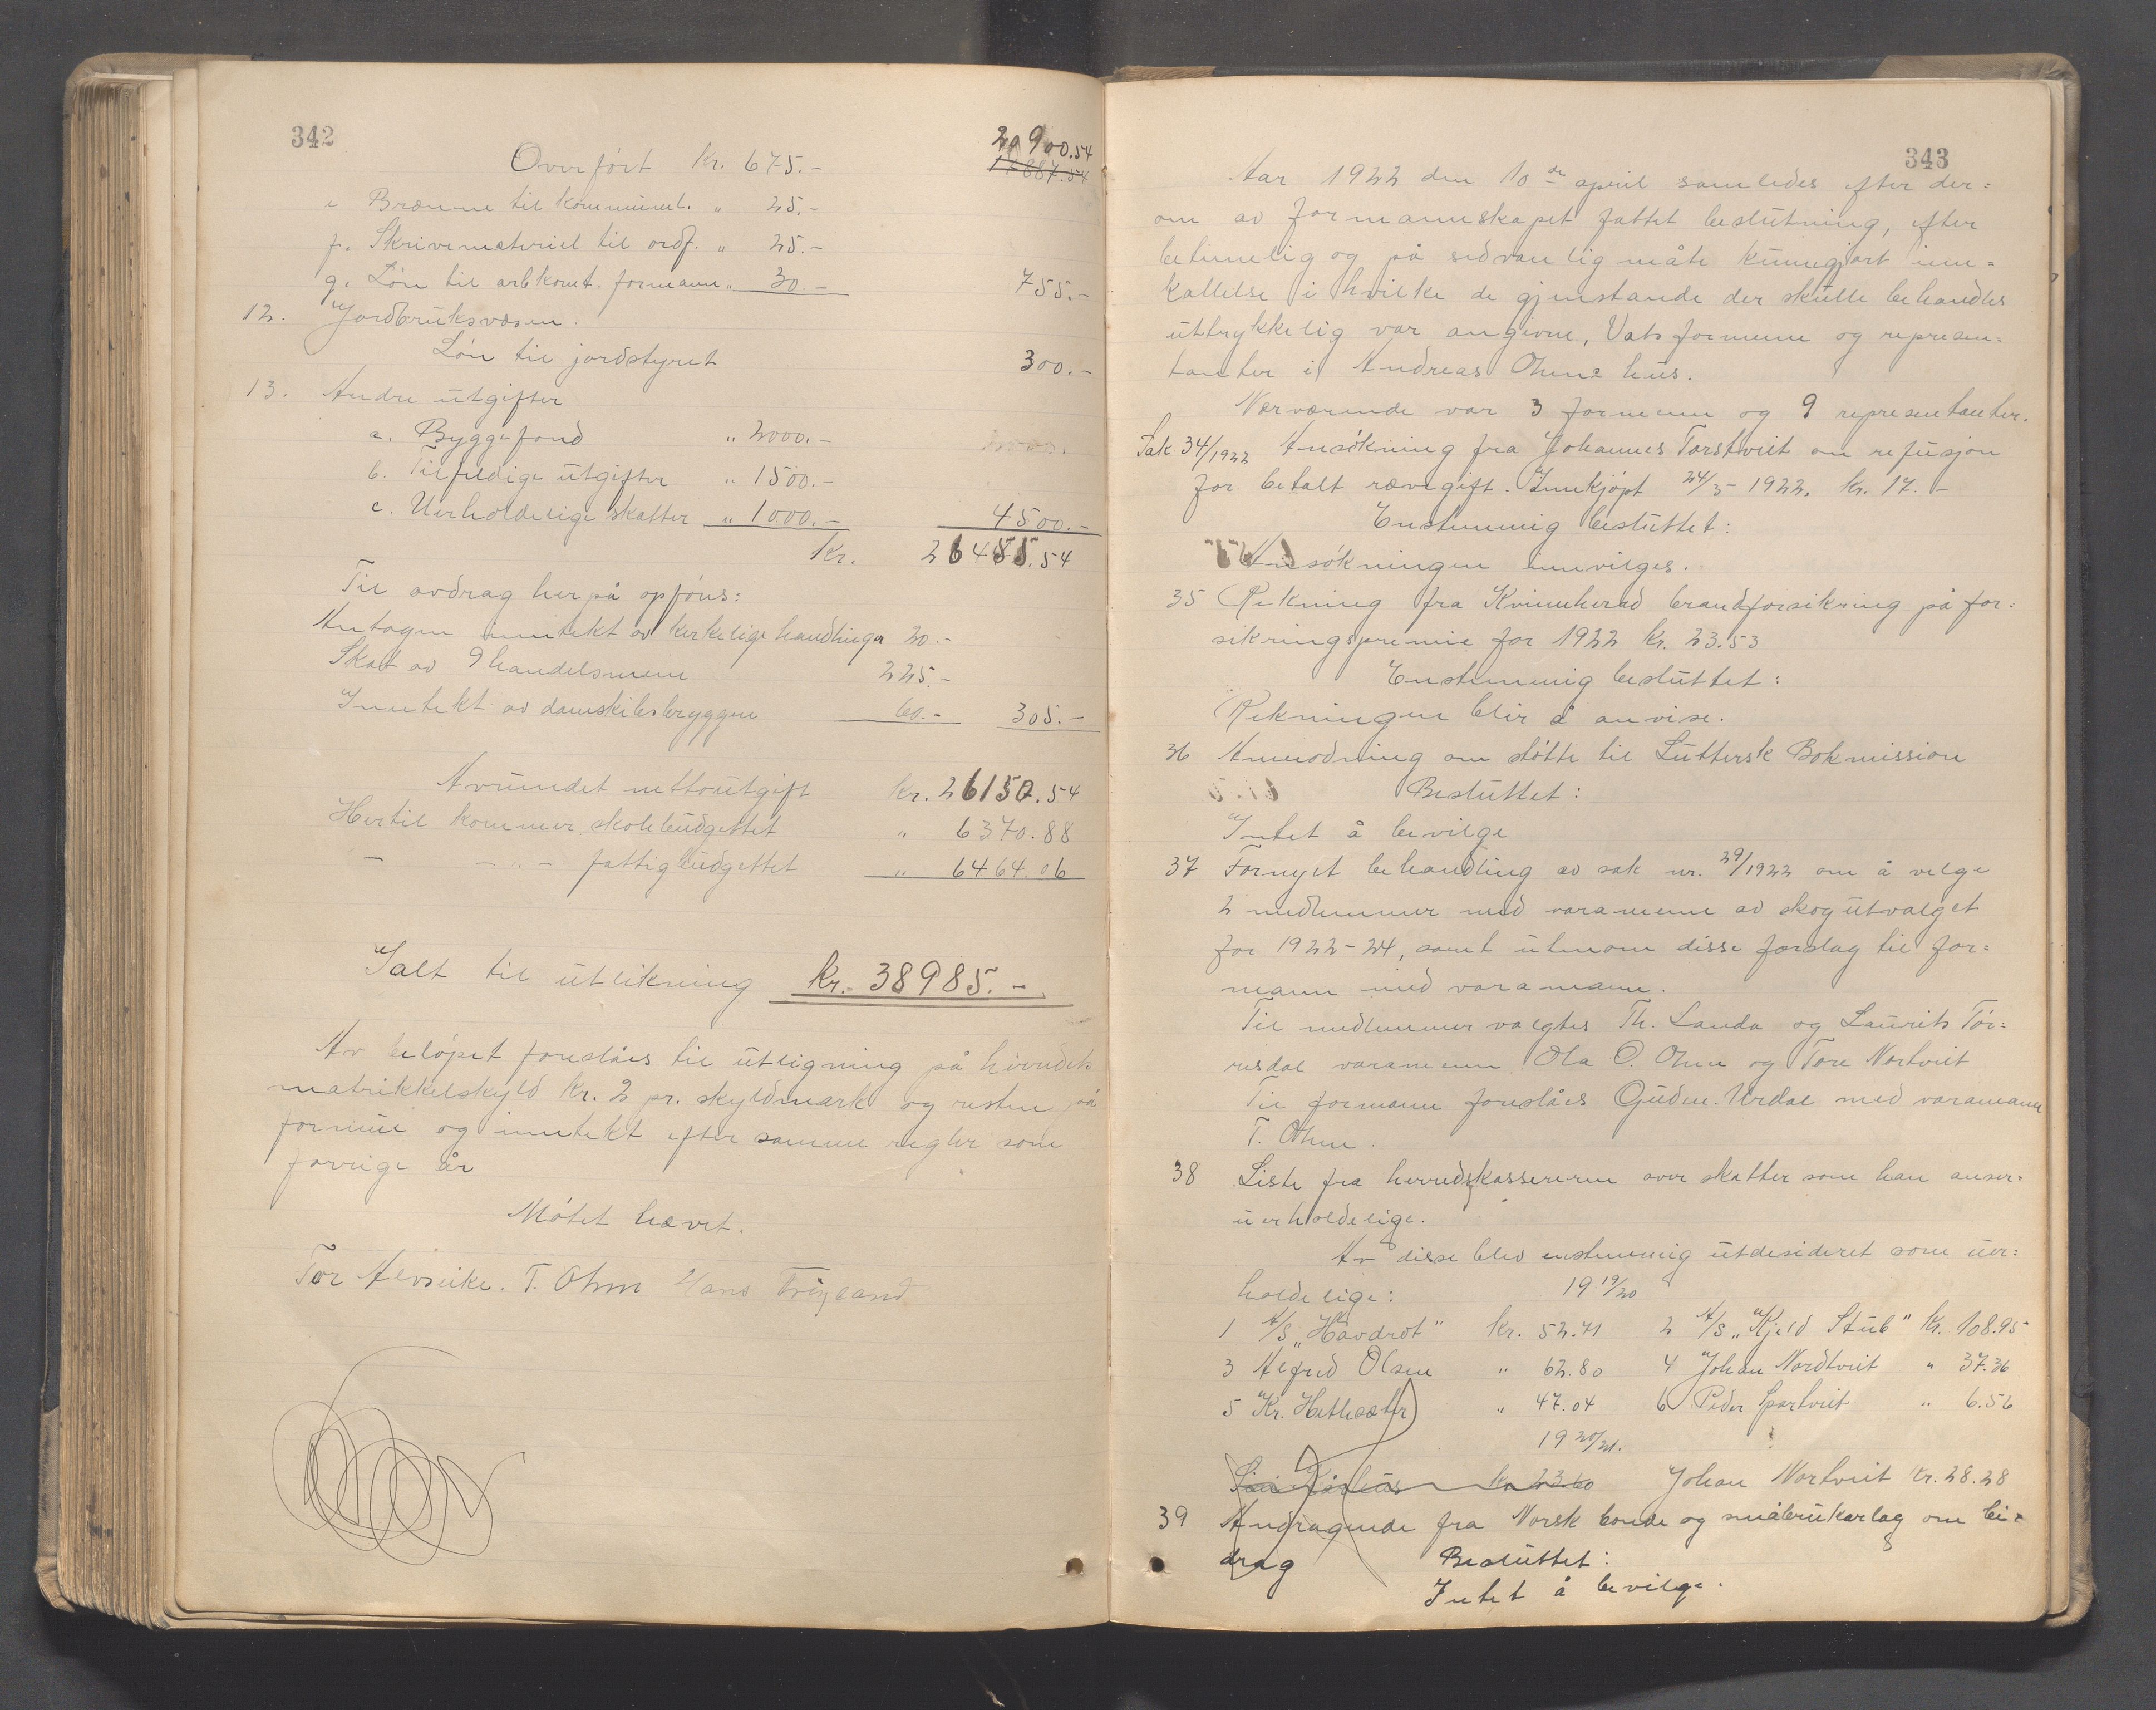 342
Overført kr. 675.- 20900.54
e Brænne til kommunel. " 25.-
f. Skrivemateriel til ordf. " 25.-
g. Løn til arbkomt. formann " 30.- 755.-
12. Jordbruksvæsen.
Løn til jordstyret 300.-
13. Andre utgifter
a. Byggefond " 2000.-
b. Tilfeldige utgifter " 1500.-
c. Uerholdelige skatter " 1000.- 4500.-
Kr. 26455.54
Til avdrag herpå opføres:
Antagen inntekt av kirkelige handlinger 20.-
Skat av 9 handelsmenn 225.-
Inntekt av damskibsbryggen 60.- 305.-
Avrundet nettoutgift kr. 26150.54
Hertil kommer skolebudgettet " 6370.88
- - " - fattigbudgettet " 6464.06
Ialt til utlikning kr. 38985.-
Av beløpet foreslåes til utligning på hovudets
matrikkelskyld kr. 2 pr. skyldmark og resten på
formue og inntekt efter samme regler som
forrige år
Møtet hævet.
Tor Alvseike. T. Ohm Hans
343
Aar 1922 den 10de april samledes efter der=
om av formannskapet fattet beslutning, efter
betimelig og på sedvanlig måte kunngjort inn=
kallelse i hvilke de gjenstande der skulle behandles
uttrykkelig var angivne, Vats formenn og represen=
tanter i Andreas Ohms hus.
Nærværende var 3 formenn og 9 representanter.
Sak 34/1922 Ansøkning fra Johannes Torstveit om refusjon
for betalt rævegift. Innkjøpt 24/3-1922. kr. 17.-
Enstemmig besluttet:
Ansøkningen innvilges.
35 Rekning fra Kvinnherad brandforsikring på for=
sikringspremie for 1922 kr. 23.53
Enstemmig besluttet:
Rekningen blir å anvise.
36 Anmodning om støtte til Luttersk Bokmission
Besluttet:
Intet å bevilge
37 Fornyet behandling av sak nr. 29/1922 om å velge
2 medlemmer med varamenn av skogutvalget
for 1922-24, samt utenom disse forslag til for=
mann med varamann.
Til medlemmer valgtes Th. Landa og Laurits Tør=
resdal varamenn Ola O. Ohm og Tore Nortveit
Til formann foreslåes Gudm. Urdal med varamann
T. Ohm.
38 Liste fra herredskassereren over skatter som han anser=
uerholdelige.
Av disse blev enstemmig utdesideret som uer=
holdelige: 1919/20
1 A/S „Havdrot" kr. 52.71 2 A/S „Kjeld Stub" kr. 108.95
3 Alfred Olsen " 62.80 4 Johan Nordtveit " 37.36
5 Kr. Hetlesæter " 47.04 6 Peder Spartveit " 6.56
1920/21.
kr 23.60 Johan Nortveit kr. 28.28
39 Andragende fra Norsk bonde og småbrukarlag om bi=
drag Besluttet:
Intet å bevilge.